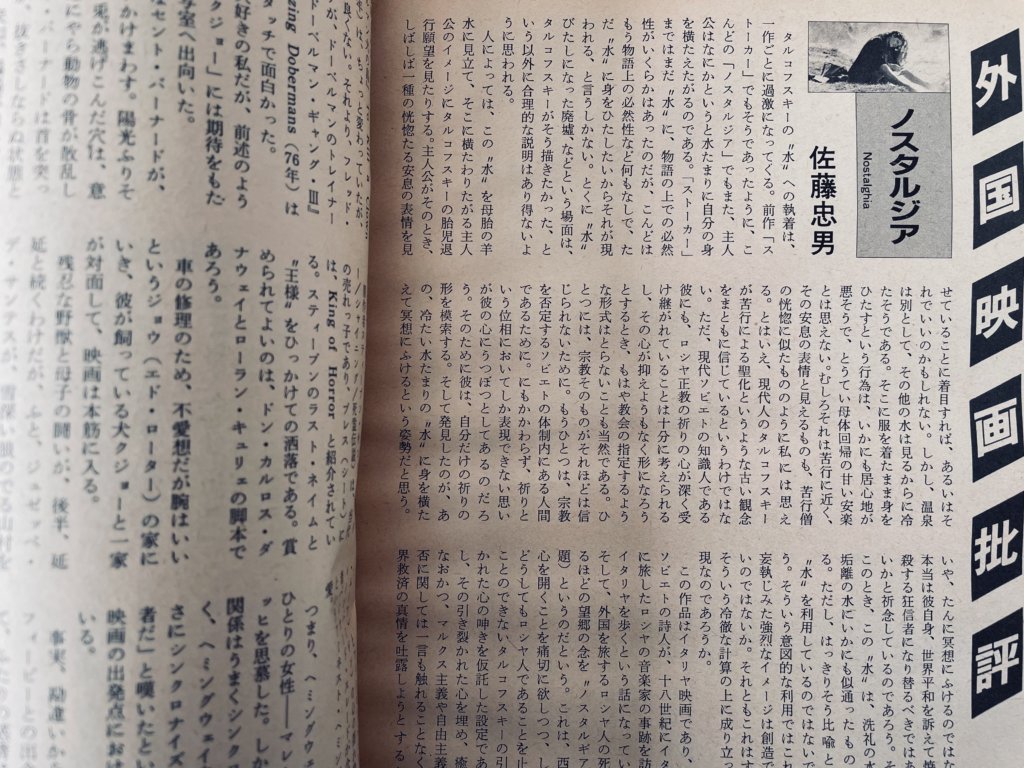 外国映画批評
ノスタルジア
Nostalghia
佐藤忠男
タルコフスキーの〝水〟への執着は、
一作ごとに過激になってくる。前作「ス
トーカー」でもそうであったように、こ
んどの「ノスタルジア」でもまた、主人
公はなにかというと水たまりに自分の身
を横たえたがるのである。「ストーカー」
まではまだ〝水〟に、物語の上での必然
性がいくらかはあったのだが、こんどは
もう物語上の必然性など何もなしで、た
だもう〝水〟に身をひたしたいからそれが現
われる、と言うしかない。とくに〝水〟
びたしになった廃墟、などという場面は、
タルコフスキーがそう描きたかった、と
いう以外に合理的な説明はあり得ないよ
うに思われる。
人によっては、この〝水〟を母胎の羊
水に見立て、そこに横たわりたがる主人
公のイメージにタルコフスキーの胎児退
行願望を見たりする。主人公がそのとき、
しばしば一種の恍惚たる安息の表情を見
せていることに着目すれば、あるいはそ
れでいいのかもしれない。しかし、温泉
は別として、その他の水は見るからに冷
たそうである。そこに服を着たまま身を
ひたすという行為は、いかにも居心地が
悪そうで、とうてい母体回帰の甘い安楽
とは思えない。むしろそれは苦行に近く、
その安息の表情と見えるものも、苦行僧
の恍惚に似たもののように私には思え
る。とはいえ、現代人のタルコフスキー
が苦行による聖化というような古い観念
をまともに信じているというわけではな
い。ただ、現代ソビエトの知識人である
彼にも、ロシヤ正教の祈りの心が深く受
け継がれていることは十分に考えられる
し、その心が抑えようもなく形になろう
とするとき、もはや教会の指定するよう
な形式はとらないことも当然である。ひ
とつには、宗教そのものがそれほどは信
じられないために。もうひとつは、宗教
を否定するソビエトの体制内にある人間
であるために。にもかかわらず、祈りと
いう位相においてしか表現できない思い
が彼の心にうつぼつとしてあるのだろ
う。そのために彼は、自分だけの祈りの
形を模索する。そして発見したのが、あ
の、冷たい水たまりの〝水〟に身を横た
えて冥想にふけるという姿勢だと思う。
いや、たんに冥想にふけるのではな
本当は彼自身、世界平和を訴えて焼
殺する狂信者になり替るべきではあ
いかと祈念しているのであろう。そ
このとき、この〝水〟は、洗礼の水
垢離の水にいかにも似通ったもの
る。ただし、はっきりそう比喩と
〝水〟を利用しているのではないで
う。そういう意図的な利用ではこれ
妄執じみた強烈なイメージは創造で
いのではないか。それともこれはも
そういう冷徹な計算の上に成り立っ
現なのであろうか。
この作品はイタリヤ映画であり、
ソビエトの詩人が、十八世紀にイタ
に旅したロシヤの音楽家の事跡を訪
イタリヤを歩くという話になってい
そして、外国を旅するロシヤ人の死
るほどの望郷の念を〝ノスタルギア
題）というのだという。これは、西
心を開くことを痛切に欲しつつ、し
どうしてもロシヤ人であることを止
ことのできないタルコフスキーの引
かれた心の呻きを仮託した設定であ
し、その引き裂かれた心を埋め、癒
なおかつ、マルクス主義や自由主義
否に関しては一言も触れることなく
界救済の真情を吐露しようとする
zing Dobermans（76年）は
タッチで面白かった。
大好きの私だが、前述のよう
クジョー」には期待をもた
写室へ出向いた。
なセント・バーナードが、
かけまわす。陽光ふりそ
兎が逃げこんだ穴は、意
にやら動物の骨が散乱し
・バーナードは首を突っ
抜きさしならぬ状態と
の売れっ子であり、
は、King of Horror と紹介されてい
る。スティーブンのラスト・ネイムと
〝王様〟をひっかけての洒落である。賞
められてよいのは、ドン・カルロス・ダ
ナウェイとローラン・キュリェの脚本で
あろう。
車の修理のため、不愛想だが腕はいい
というジョウ（エド・ローター）の家に
いき、彼が飼っている犬クジョーと一家
が対面して、映画は本筋に入る。
残忍な野獣と母子の闘いが、後半、延
延と続くわけだが、ふと、ジュゼッペ・
つまり、ヘミングウェ
ひとりの女性――マレ
ッヒを思慕した。しか
関係はうまくシンク
く、ヘミングウェイ
さにシンクロナイズ
者だ」と嘆いたとい
映画の出発点にお
いる。